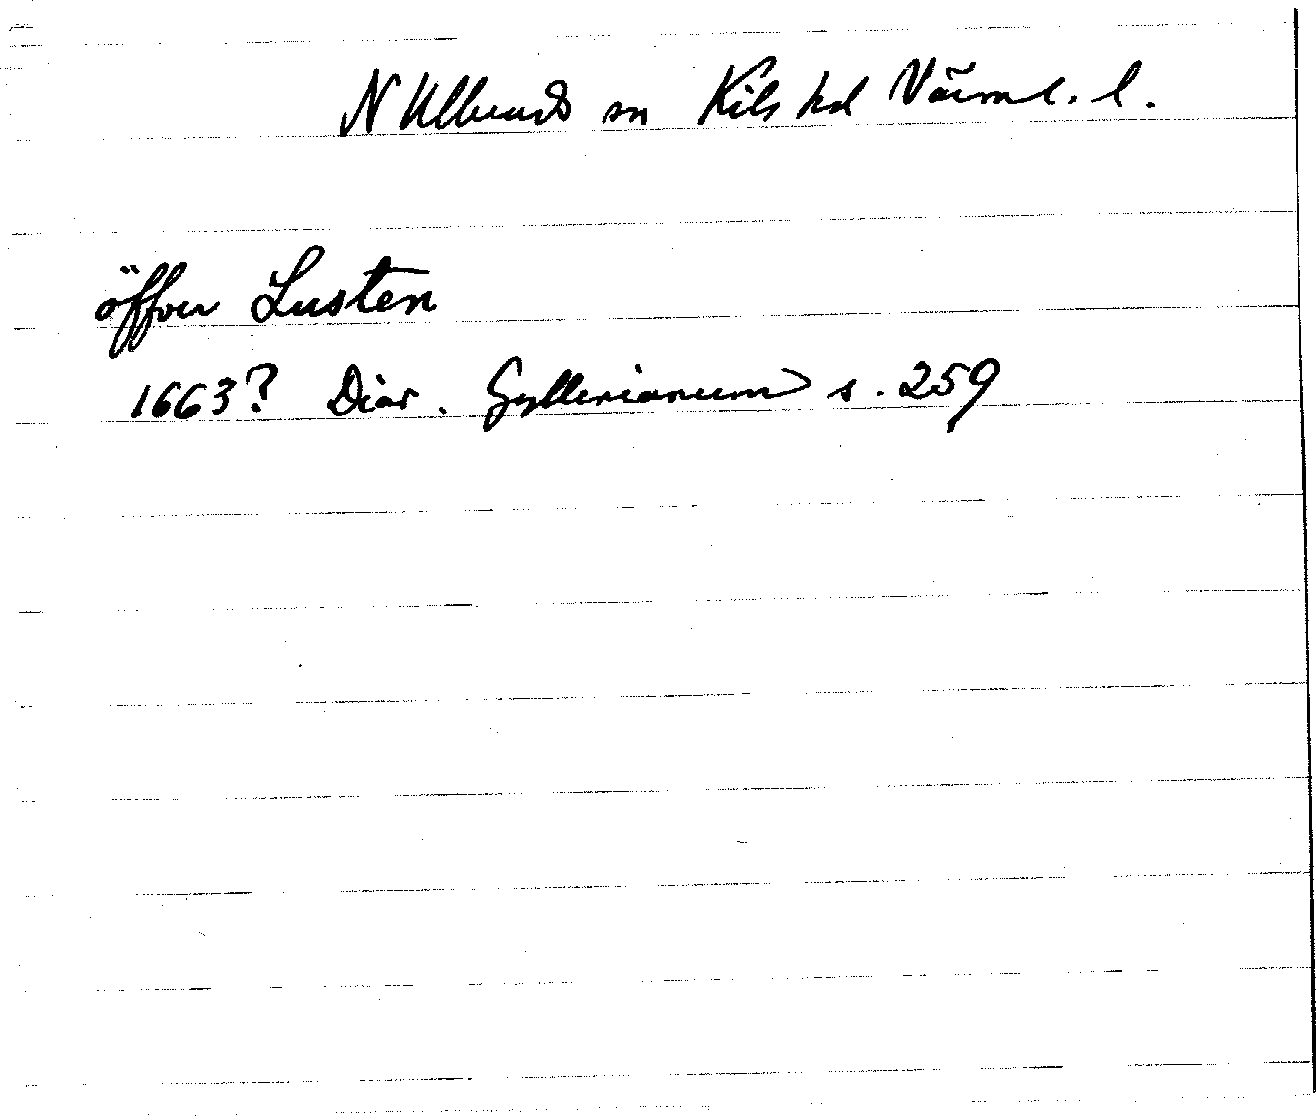 N Ullerud sn Kils hd Värml. l.
öffver Lusten
1663? Diar. Gyllenianum s. 259